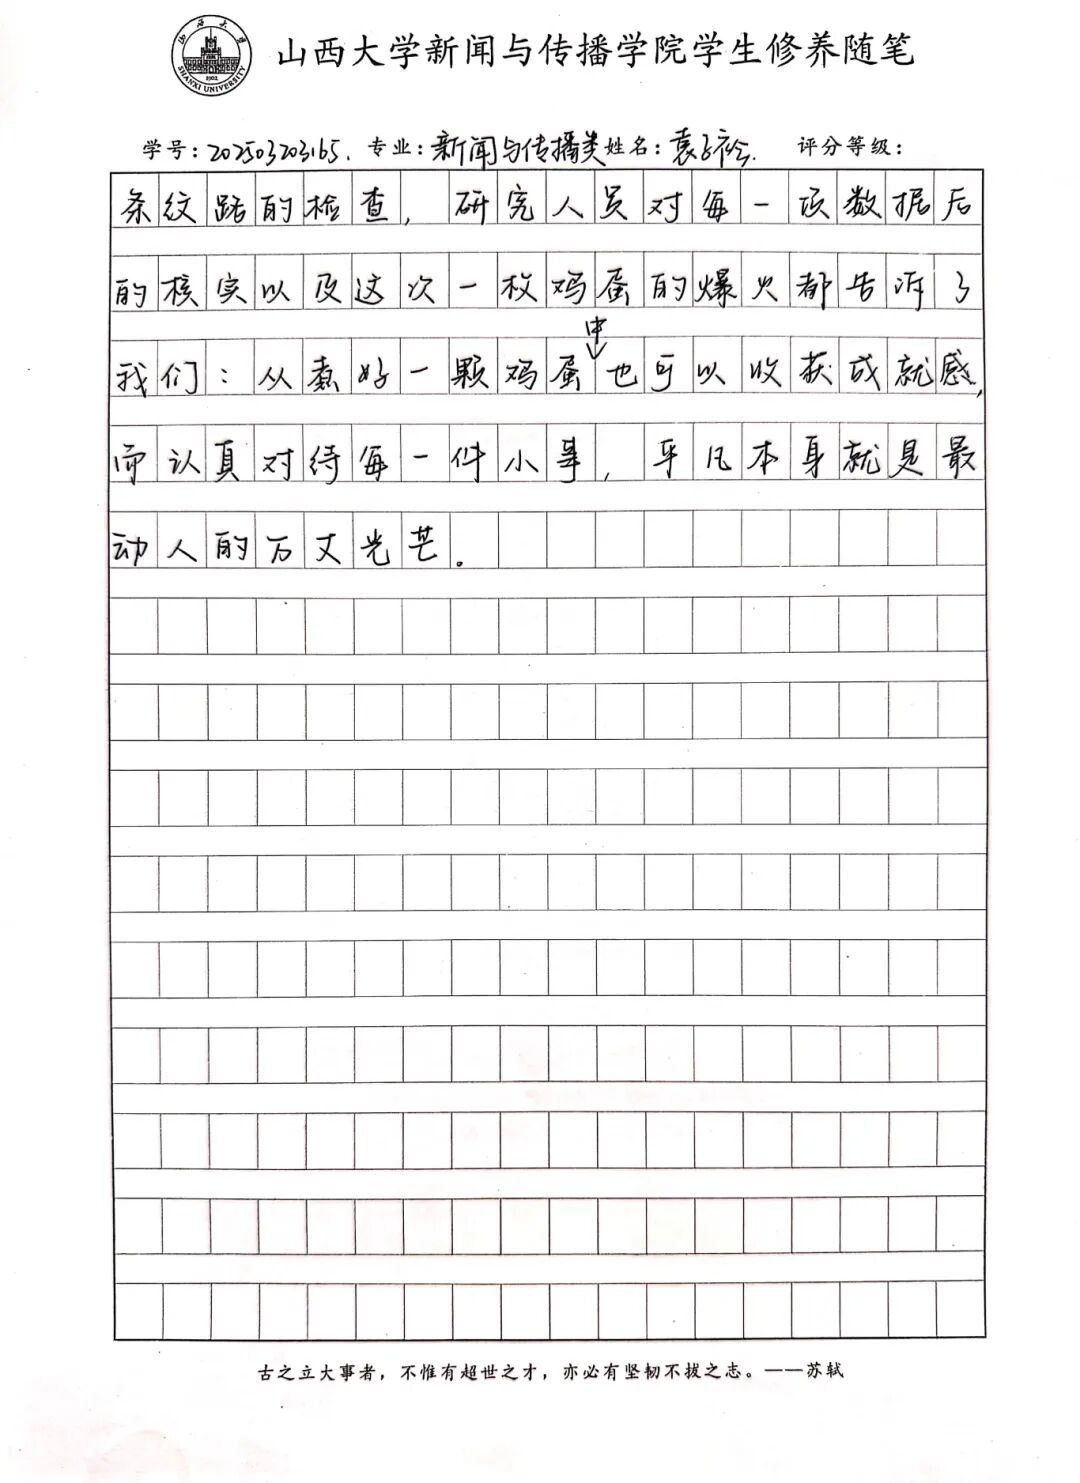 山西大学
SHANXI UNIVERSITY
1902
山西大学新闻与传播学院学生修养随笔
学号：202503203165. 专业：新闻与传播类 姓名：袁子衿. 评分等级：
条纹路的检查，研究人员对每一项数据后
的核实以及这次一枚鸡蛋的爆火都告诉了
中
我们：从煮好一颗鸡蛋也可以收获成就感，
而认真对待每一件小事，平凡本身就是最
动人的万丈光芒。
古之立大事者，不惟有超世之才，亦必有坚韧不拔之志。——苏轼